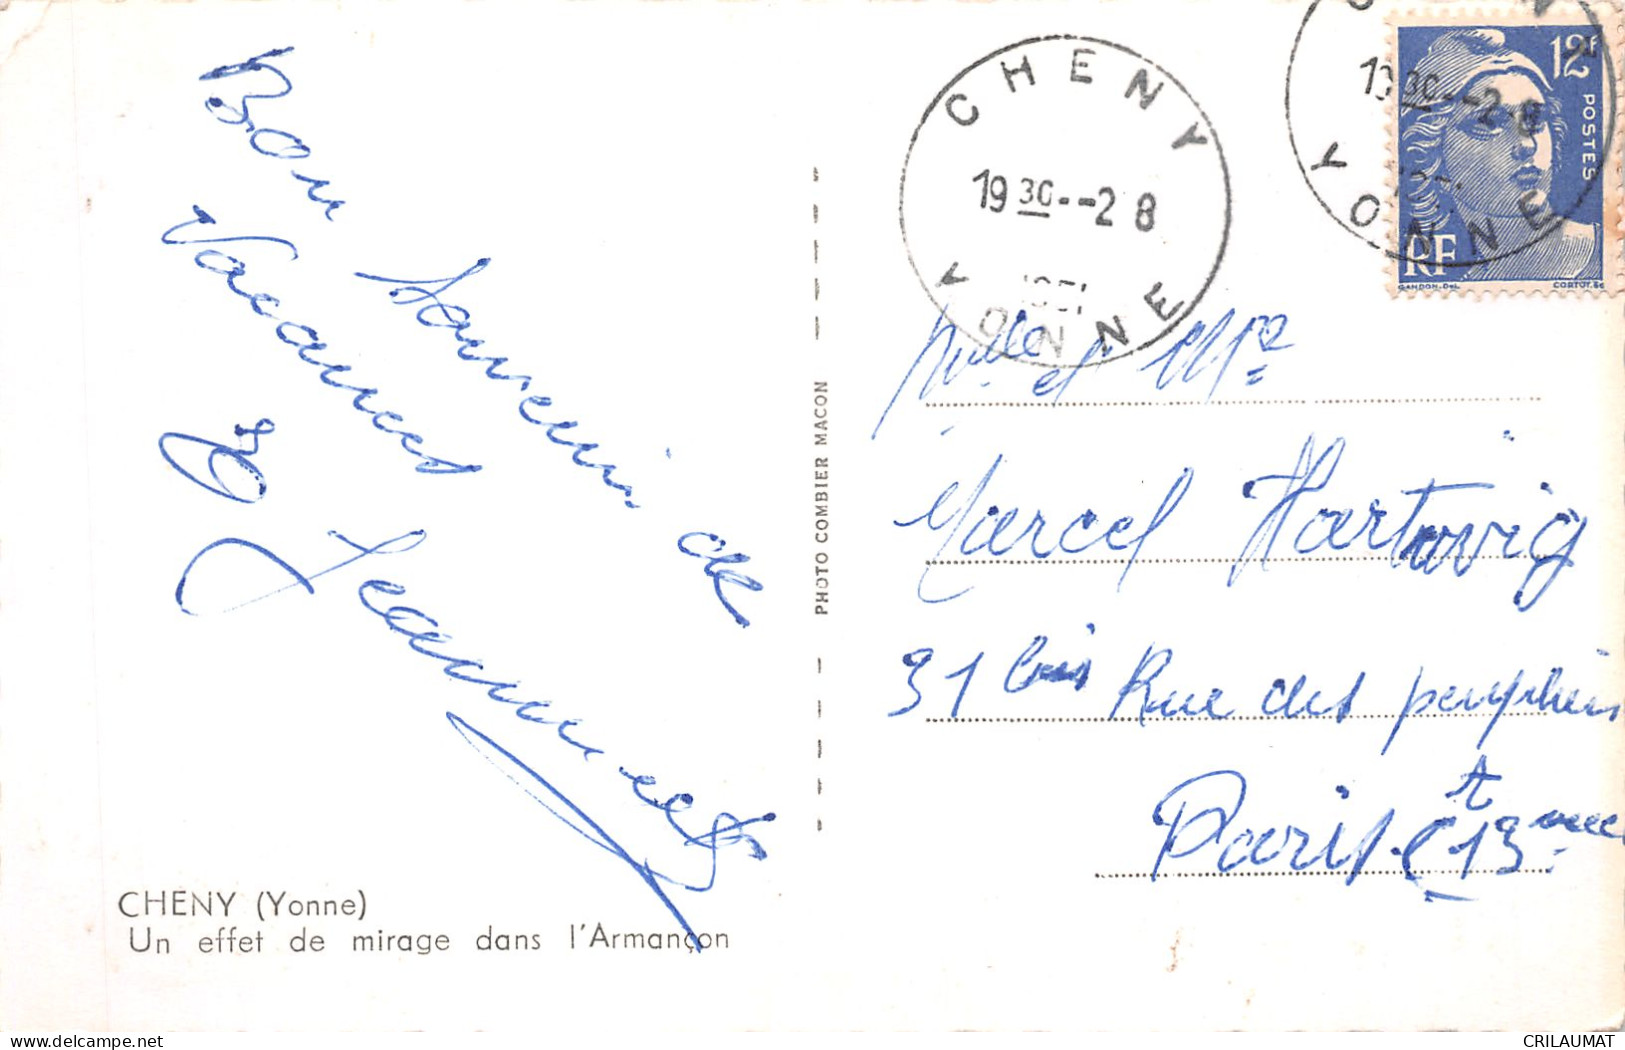 Bon souvenir de
Vacances
Jeannette
CHENY (Yonne)
Un effet de mirage dans l'Armançon
PHOTO COMBIER MACON
CHENY
19 30 - - 2 8
1951
YONNE
19 30 - - 2 8
YONNE
12F
POSTES
RF
GANDON. DEL.
CORTOT. SC
Mlle et Mr
Marcel Hartwig
31 bis Rue des
Paris (13
CRILAUMAT